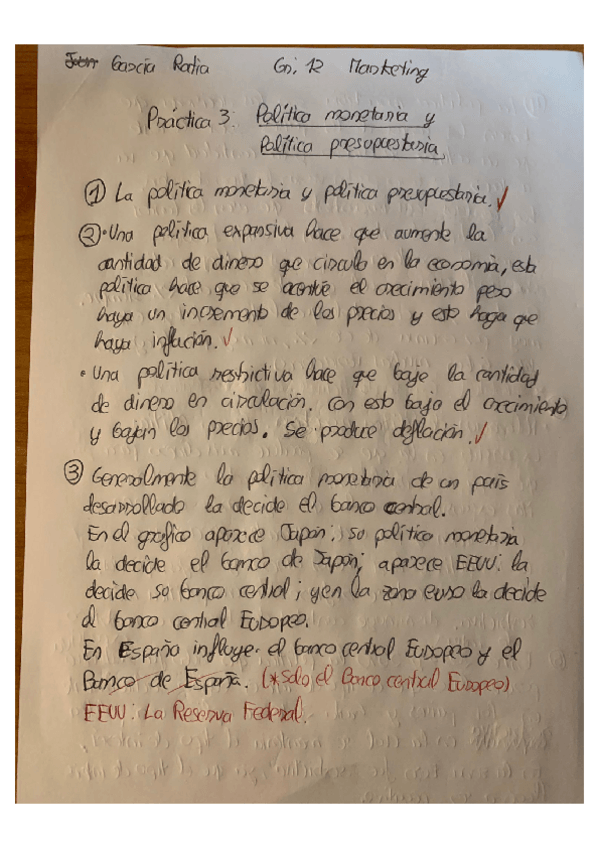 García Ratia Gr; 12 Marketing
Práctica 3: Política monetaria y
Política presupuestaria
① La política monetaria y política presupuestaria. ✓
② • Una política expansiva hace que aumente la
cantidad de dinero que circula en la economía, esta
política hace que se acentúe el crecimiento pero
haya un incremento de los precios y esto haga que
haya inflación. ✓
• Una política restrictiva hace que baje la cantidad
de dinero en circulación. Con esto baja el crecimiento
y bajan los precios. Se produce deflación. ✓
③ Generalmente la política monetaria de un país
desarrollado la decide el banco central.
En el gráfico aparece Japón; su política monetaria
la decide el banco de Japón; aparece EEUU: la
decide su banco central; y en la zona euro la decide
el banco central Europeo.
En España influye el banco central Europeo y el
Banco de España. (*Solo el Banco central Europeo)
EEUU: La Reserva Federal.